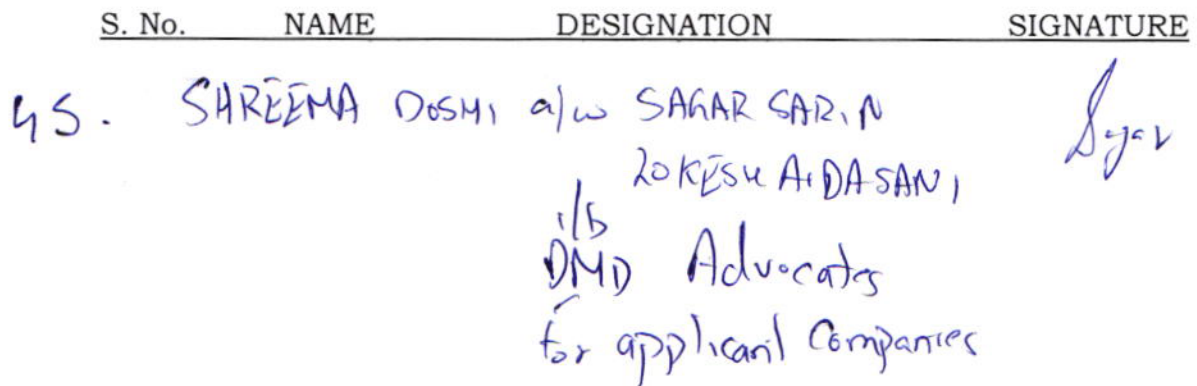 S. No. NAME DESIGNATION SIGNATURE
45. SHREEMA DOSHI a/w SAGAR SARIN
LOKESH AIDASANI
i/b
DMD Advocates
for applicant Companies